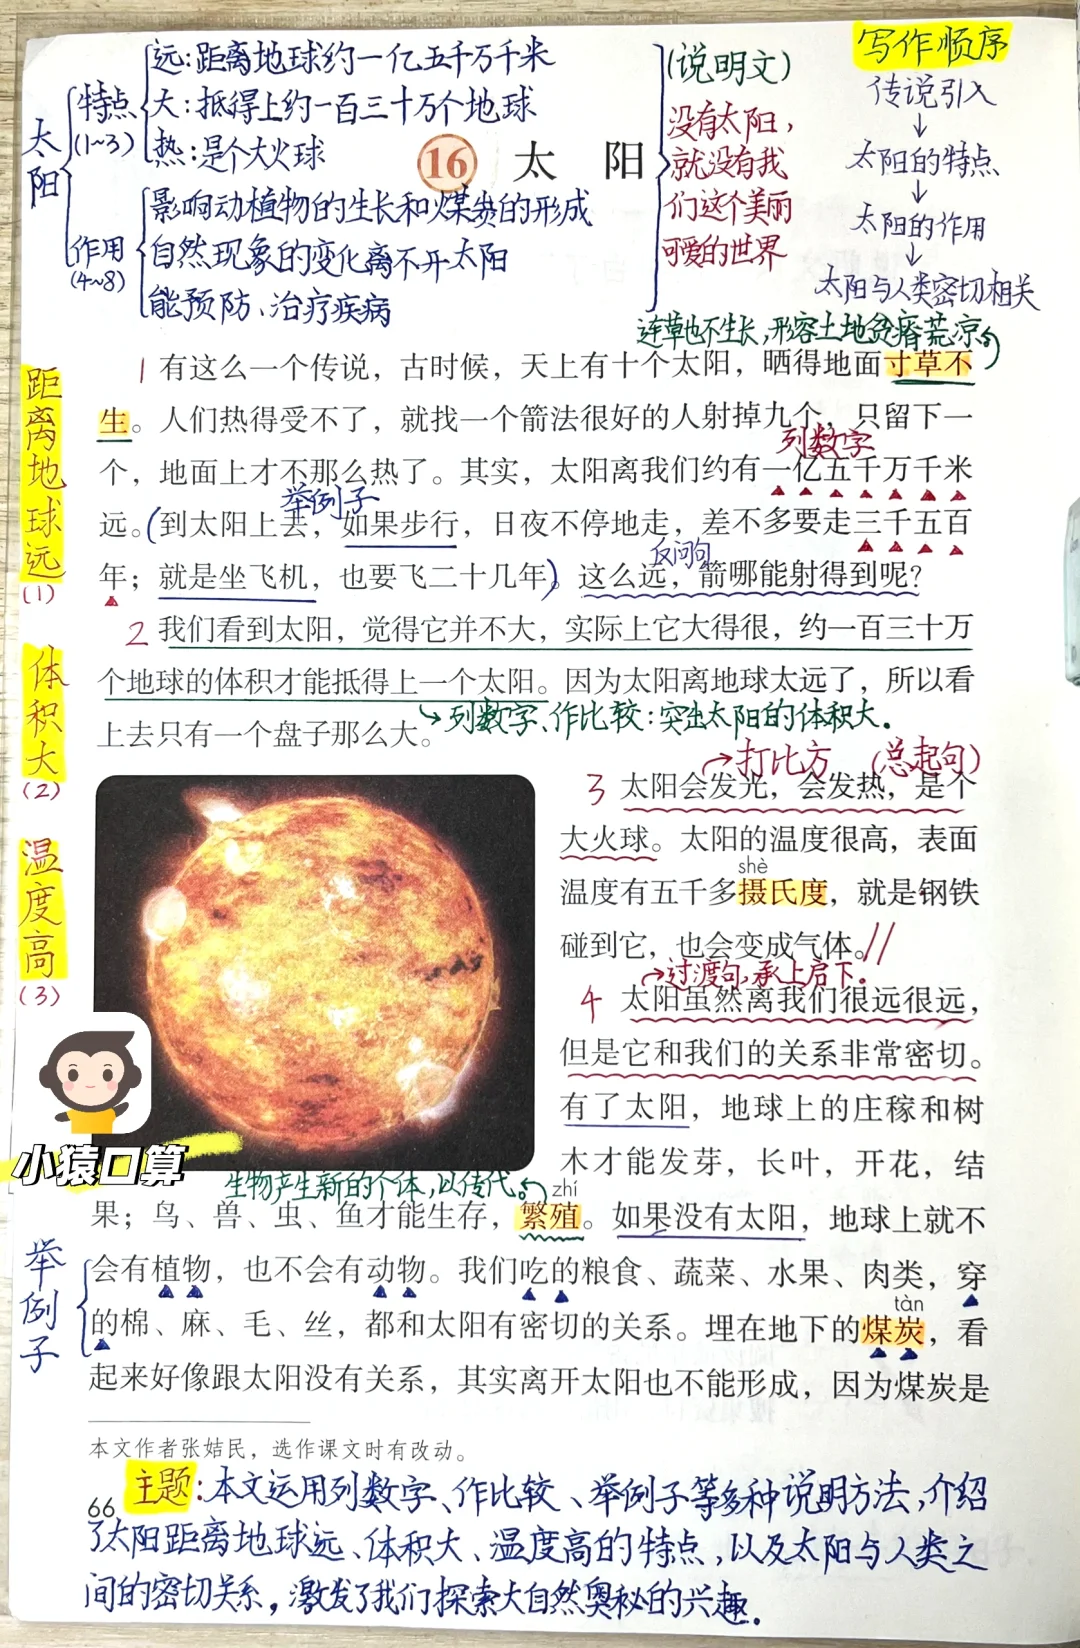 写作顺序
传说引入
↓
太阳的特点
↓
太阳的作用
↓
太阳与人类密切相关
太阳
特点
(1~3)
远:距离地球约一亿五千万千米
大:抵得上约一百三十万个地球
热:是个大火球
作用
(4~8)
影响动植物的生长和煤炭的形成
自然现象的变化离不开太阳
能预防、治疗疾病
(说明文)
没有太阳,
就没有我
们这个美丽
可爱的世界
16 太阳
连草也不生长,形容土地贫瘠荒凉。
1 有这么一个传说，古时候，天上有十个太阳，晒得地面寸草不
生。人们热得受不了，就找一个箭法很好的人射掉九个，只留下一
列数字
个，地面上才不那么热了。其实，太阳离我们约有一亿五千万千米
举例子
远。(到太阳上去，如果步行，日夜不停地走，差不多要走三千五百
反问句
年；就是坐飞机，也要飞二十几年)。这么远，箭哪能射得到呢?
2 我们看到太阳，觉得它并不大，实际上它大得很，约一百三十万
个地球的体积才能抵得上一个太阳。因为太阳离地球太远了，所以看
上去只有一个盘子那么大。
列数字、作比较:突出太阳的体积大。
距离地球远
(1)
体积大
(2)
温度高
(3)
打比方 (总起句)
3 太阳会发光，会发热，是个
大火球。太阳的温度很高，表面
shè
温度有五千多摄氏度，就是钢铁
碰到它，也会变成气体。//
过渡句,承上启下。
4 太阳虽然离我们很远很远，
但是它和我们的关系非常密切。
有了太阳，地球上的庄稼和树
木才能发芽，长叶，开花，结
小猿口算
生物产生新的个体,以传代。
zhí
果；鸟、兽、虫、鱼才能生存，繁殖。如果没有太阳，地球上就不
举例子
会有植物，也不会有动物。我们吃的粮食、蔬菜、水果、肉类，穿
tàn
的棉、麻、毛、丝，都和太阳有密切的关系。埋在地下的煤炭，看
起来好像跟太阳没有关系，其实离开太阳也不能形成，因为煤炭是
本文作者张姞民，选作课文时有改动。
66
主题:本文运用列数字、作比较、举例子等多种说明方法,介绍
了太阳距离地球远、体积大、温度高的特点,以及太阳与人类之
间的密切关系,激发了我们探索大自然奥秘的兴趣.